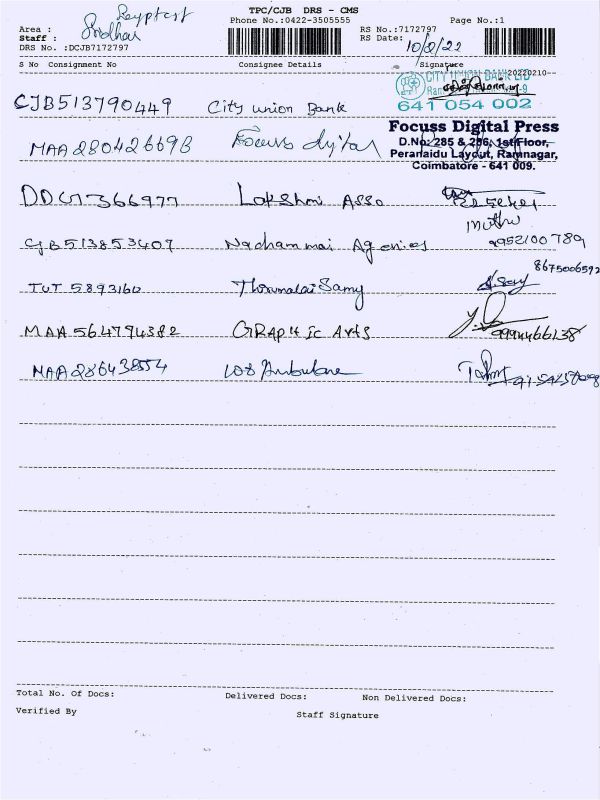 TPC/CJB DRS - CMS
Area :
Phone No.:0422-3505555
Page No.:1
Staff : Sridhar
RS No.:7172797
DRS No. :DCJB7172797
RS Date: 10/2/22
S No Consignment No Consignee Details Signature
CITY UNION BANK LTD
20220210
CJB513790449 City union Bank 641 054 002
Focuss Digital Press
D.No: 285 & 286, 1st Floor,
MAA280426698 Focuss digital
Peranaidu Layout, Ramnagar,
Coimbatore - 641 009.
DDG1366977 Lakshmi Asso
Muthu
CJB513853407 Nachammai Agencies 9952100789
8675006592
TUT 5893160 Thirumalai Samy
MAA 564794382 GRAPHIC Arts 9994466138
MAA286438554 108 Ambulance
Total No. Of Docs: Delivered Docs: Non Delivered Docs:
Verified By Staff Signature